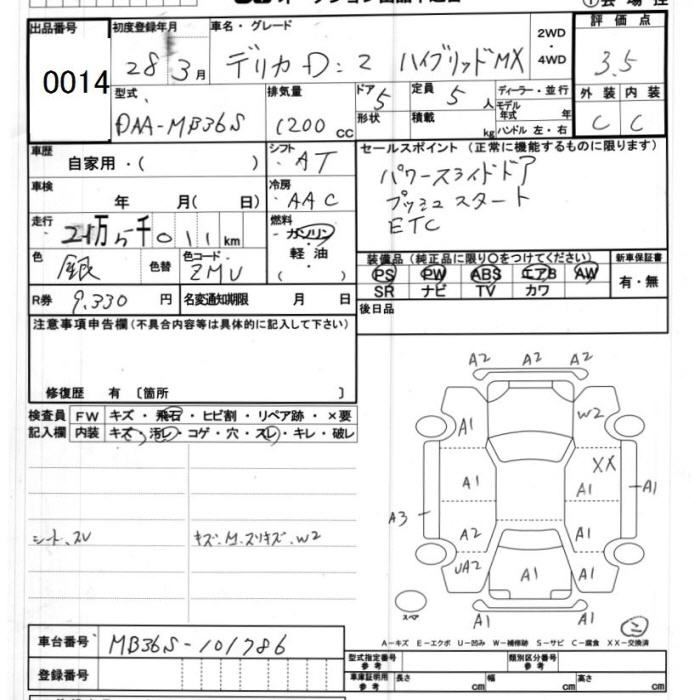 出品番号
0014
初度登録年月
28年3月
車名・グレード
デリカD:2 ハイブリッドMX
2WD・4WD
評価点
3.5
型式
DAA-MB36S
排気量
1200 CC
ドア 5
形状
定員 5 人
積載 kg
ディーラー・並行
モデル年式 年
ハンドル 左・右
外装 内装
C C
車歴
自家用・( )
シフト AT
セールスポイント (正常に機能するものに限ります)
パワースライドドア
プッシュスタート
ETC
車検 年 月( 日)
冷房 AAC
走行 2万5千011km
燃料 ガソリン 軽油
色 銀 色替
色コード ZMU
装備品 (純正品に限り〇をつけてください)
PS PW ABS エアB AW
SR ナビ TV カワ
新車保証書
有・無
R券 9.330円
名変通知期限 月 日
後日品
注意事項申告欄(不具合内容等は具体的に記入して下さい)
修復歴 有 〔箇所 〕
検査員記入欄
FW キズ・飛石・ヒビ割・リペア跡・×要
内装 キズ・汚レ・コゲ・穴・スレ・キレ・破レ
シート、スレ
キズ.M.スリキズ.W2
A2 A2 A2
A1 W2
XX
A1 A1 A1
A3
A2 A1
UA2 A1 A1
A1 A1
スペア
A-キズ E-エクボ U-凹み W-補修跡 S-サビ C-腐食 XX-交換済
車台番号 MB36S-101786
登録番号
型式指定番号 参考
類別区分番号 参考
車庫証明用 参考 長さ cm 幅 cm 高さ cm